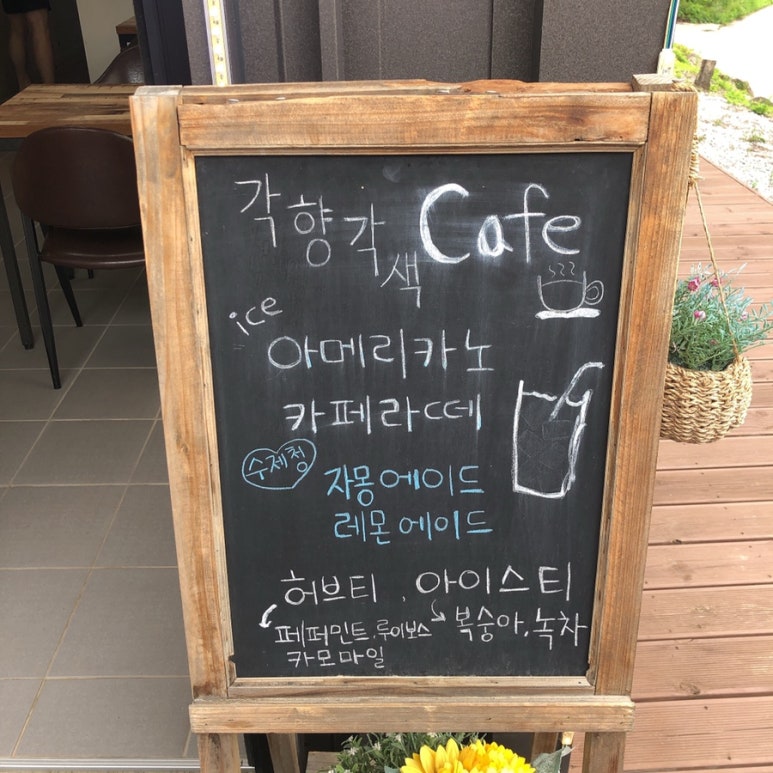 각향각색 Cafe
ice
아메리카노
카페라떼
수제청
자몽에이드
레몬에이드
허브티 , 아이스티
페퍼민트, 루이보스 복숭아, 녹차
카모마일